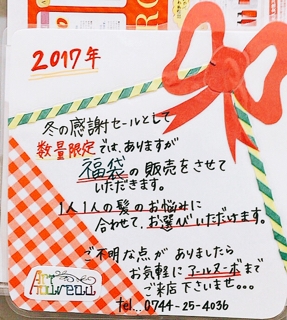 2017年
冬の感謝セールとして
数量限定では、ありますが
福袋の販売をさせて
いただきます。
1人1人の髪のお悩みに
合わせて、お選びいただけます。
ご不明な点が ありましたら
お気軽に アールヌーボまで
ご来店 下さいませ。。。
Art Nouveau
tel... 0744-25-4036